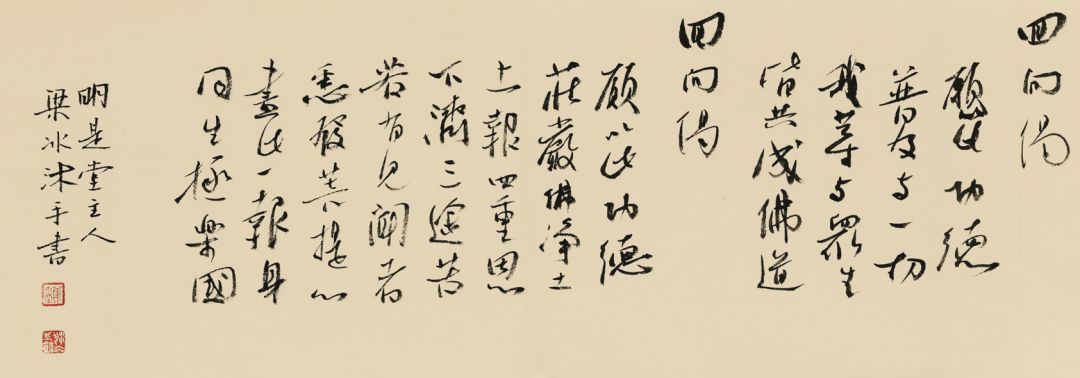 回向偈
願以此功德
普及与一切
我等与眾生
皆共成佛道
回向偈
願以此功德
莊嚴佛淨土
上報四重恩
下濟三途苦
若有見聞者
悉發菩提心
盡此一報身
同生極樂國
明是堂主人
梁冰沐手書